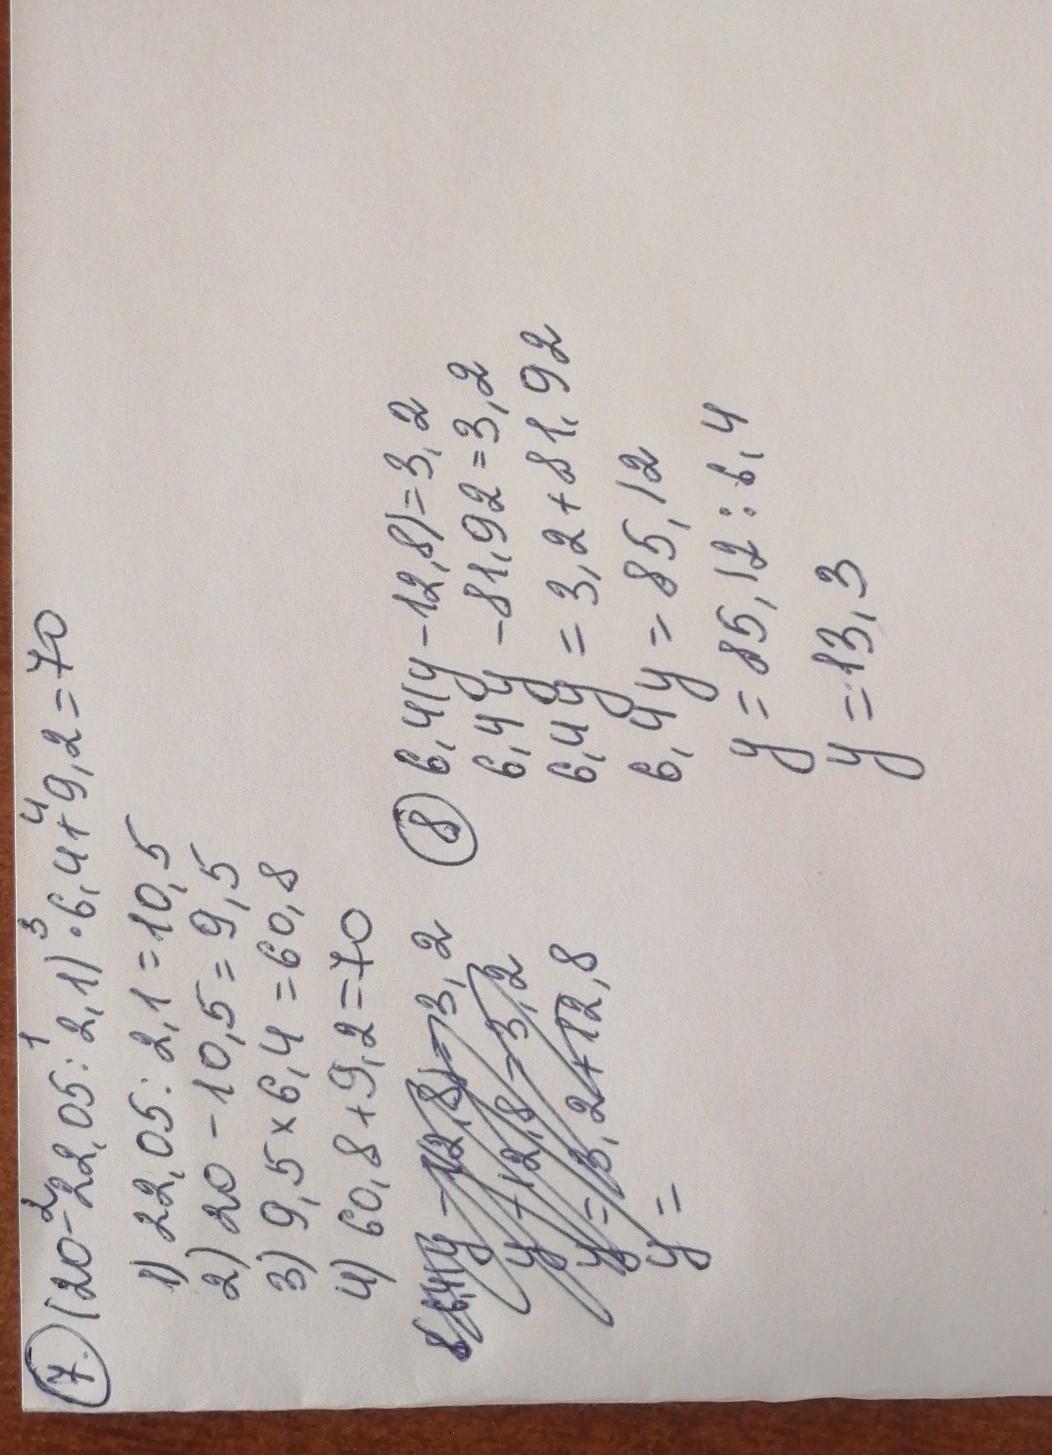 7. (20-22,05:2,1)·6,4+9,2=70
1) 22,05:2,1=10,5
2) 20-10,5=9,5
3) 9,5×6,4=60,8
4) 60,8+9,2=70
6,4(y-12,8)=3,2
y-12,8=3,2
y=3,2+12,8
y=
8 6,4(y-12,8)=3,2
6,4y-81,92=3,2
6,4y=3,2+81,92
6,4y=85,12
y=85,12:6,4
y=13,3